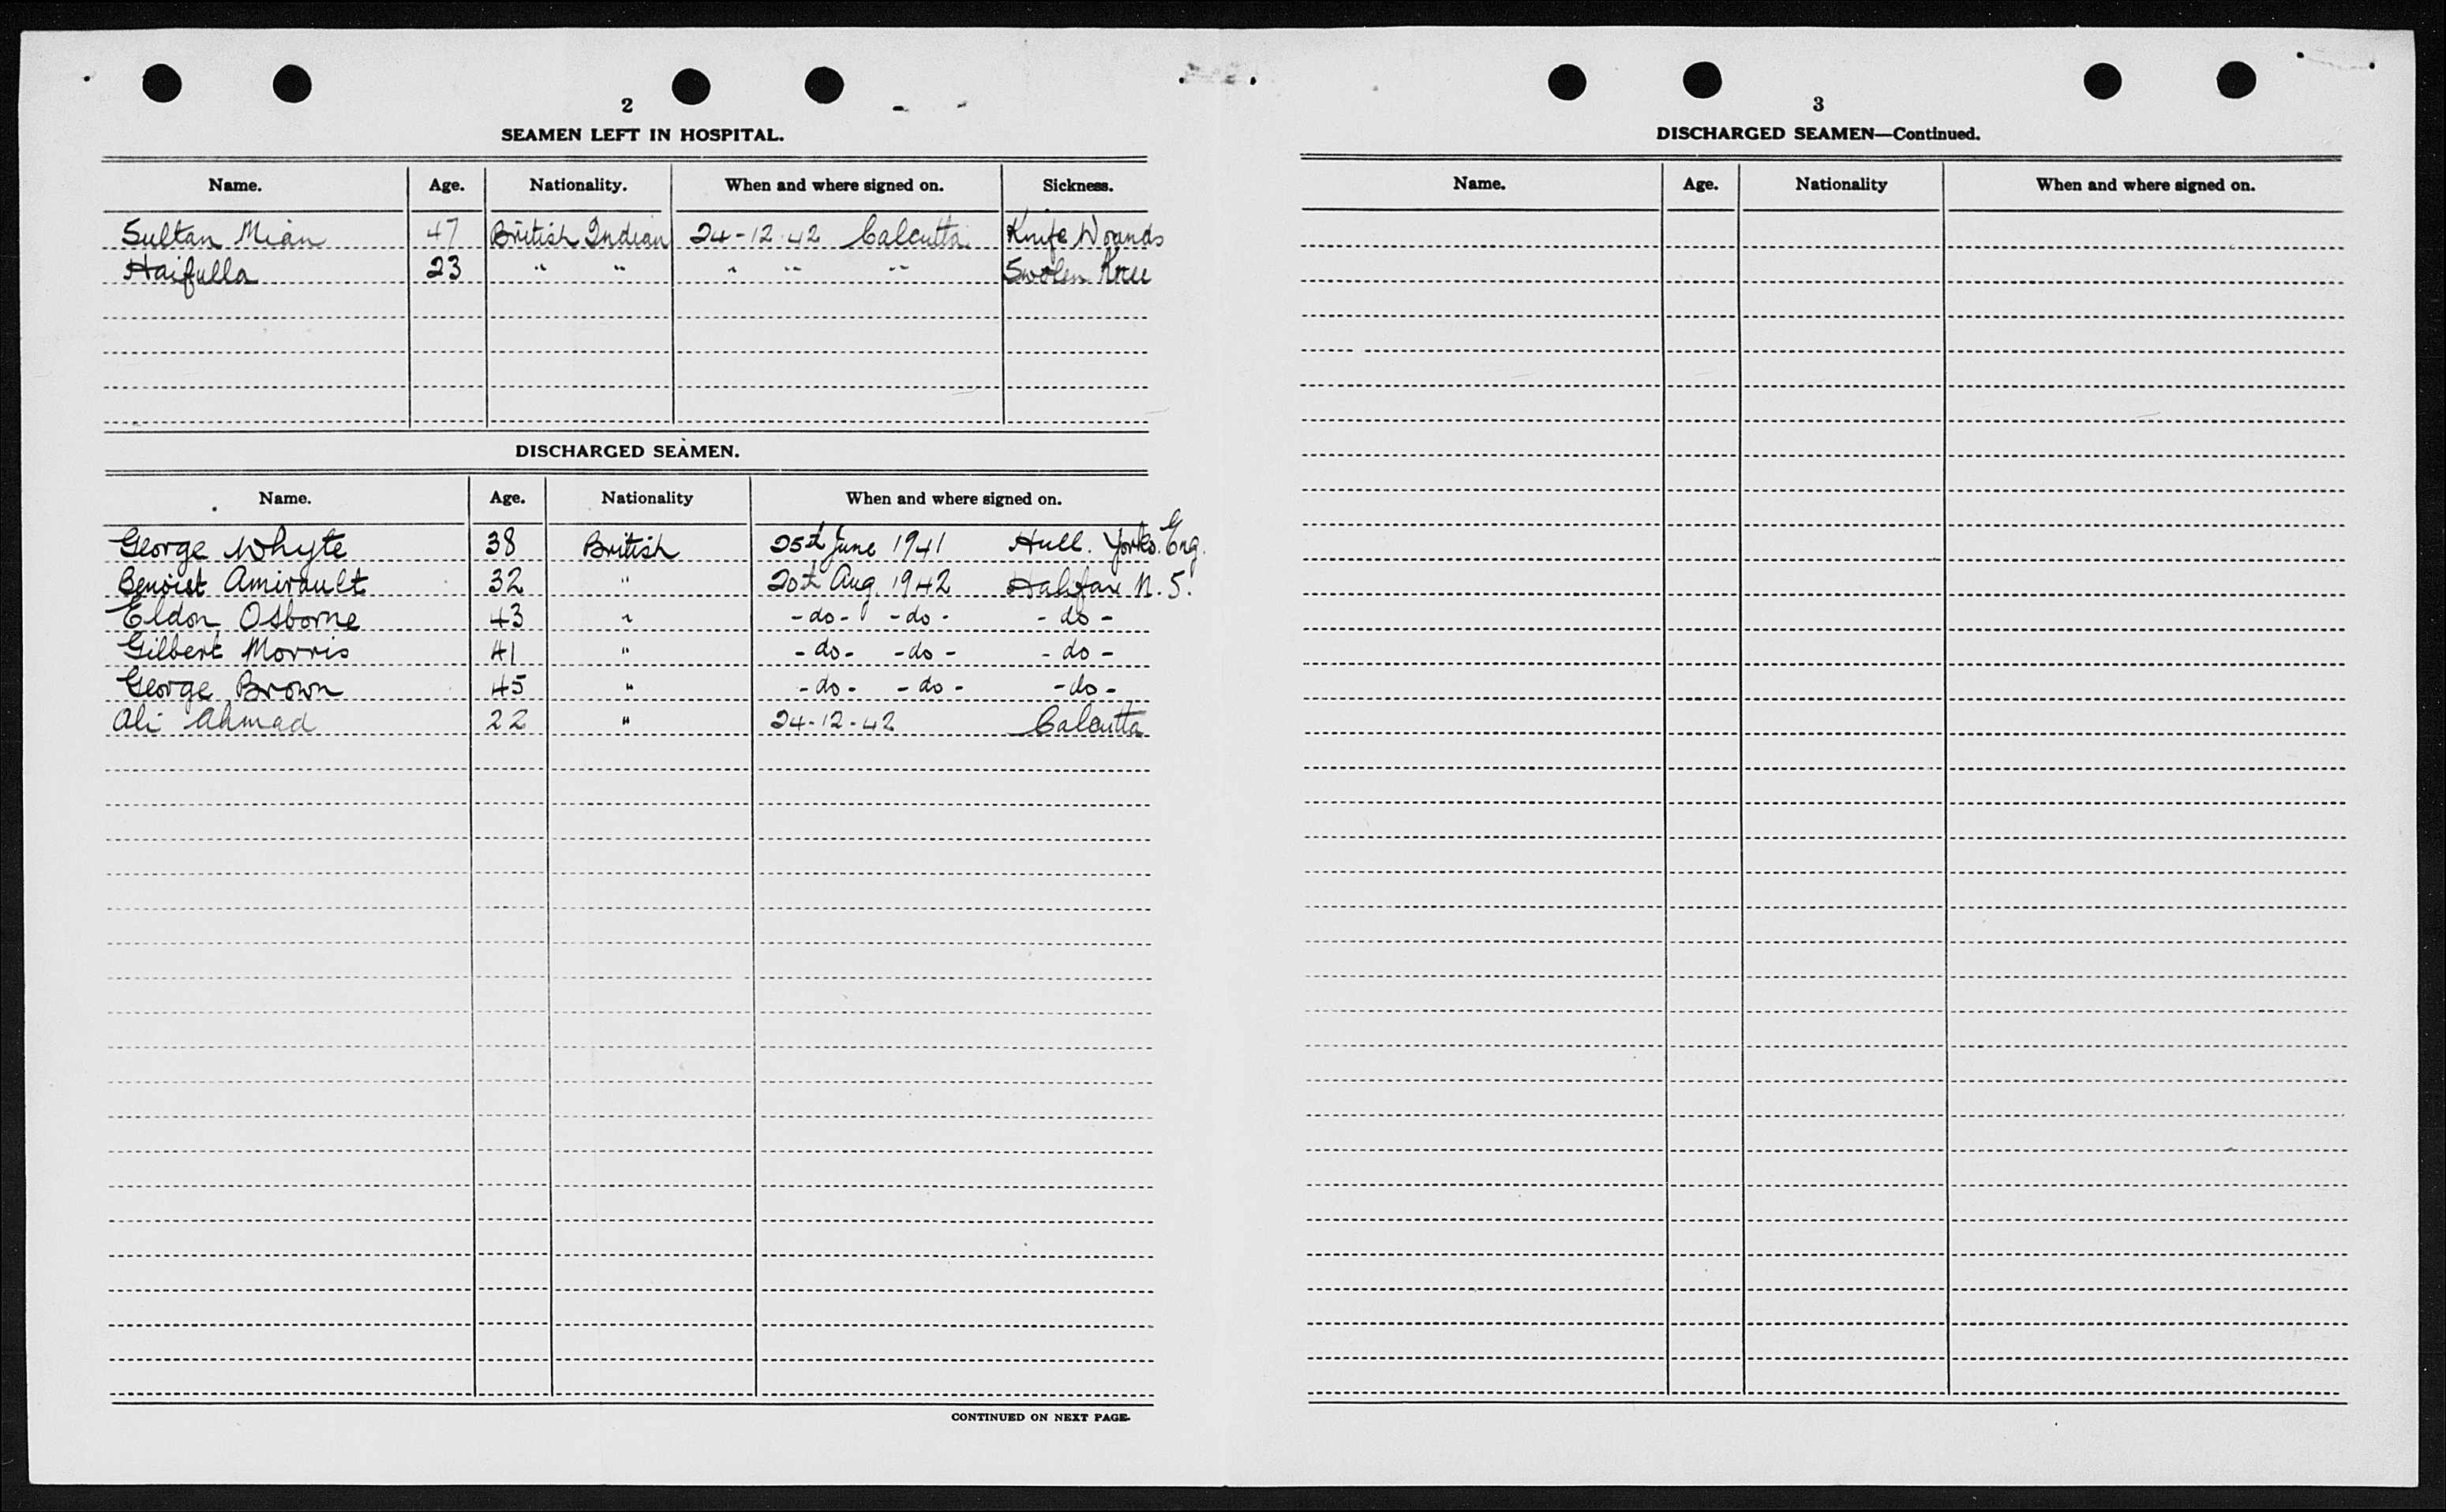 2
SEAMEN LEFT IN HOSPITAL.
Name. Age. Nationality. When and where signed on. Sickness.
Sultan Mian 47 British Indian 24-12-42 Calcutta Knife Wounds
Haifulla 23 " " " " " Swolen Knee
DISCHARGED SEAMEN.
Name. Age. Nationality When and where signed on.
George Whyte 38 British 25th June 1941 Hull. Yorks. Eng.
Benoist Amirault 32 " 20th Aug. 1942 Halifax N.S.
Eldon Osborne 43 " -do- -do- -do-
Gilbert Morris 41 " -do- -do- -do-
George Brown 45 " -do- -do- -do-
Ali Ahmad 22 " 24-12-42 Calcutta
CONTINUED ON NEXT PAGE.
3
DISCHARGED SEAMEN—Continued.
Name. Age. Nationality When and where signed on.